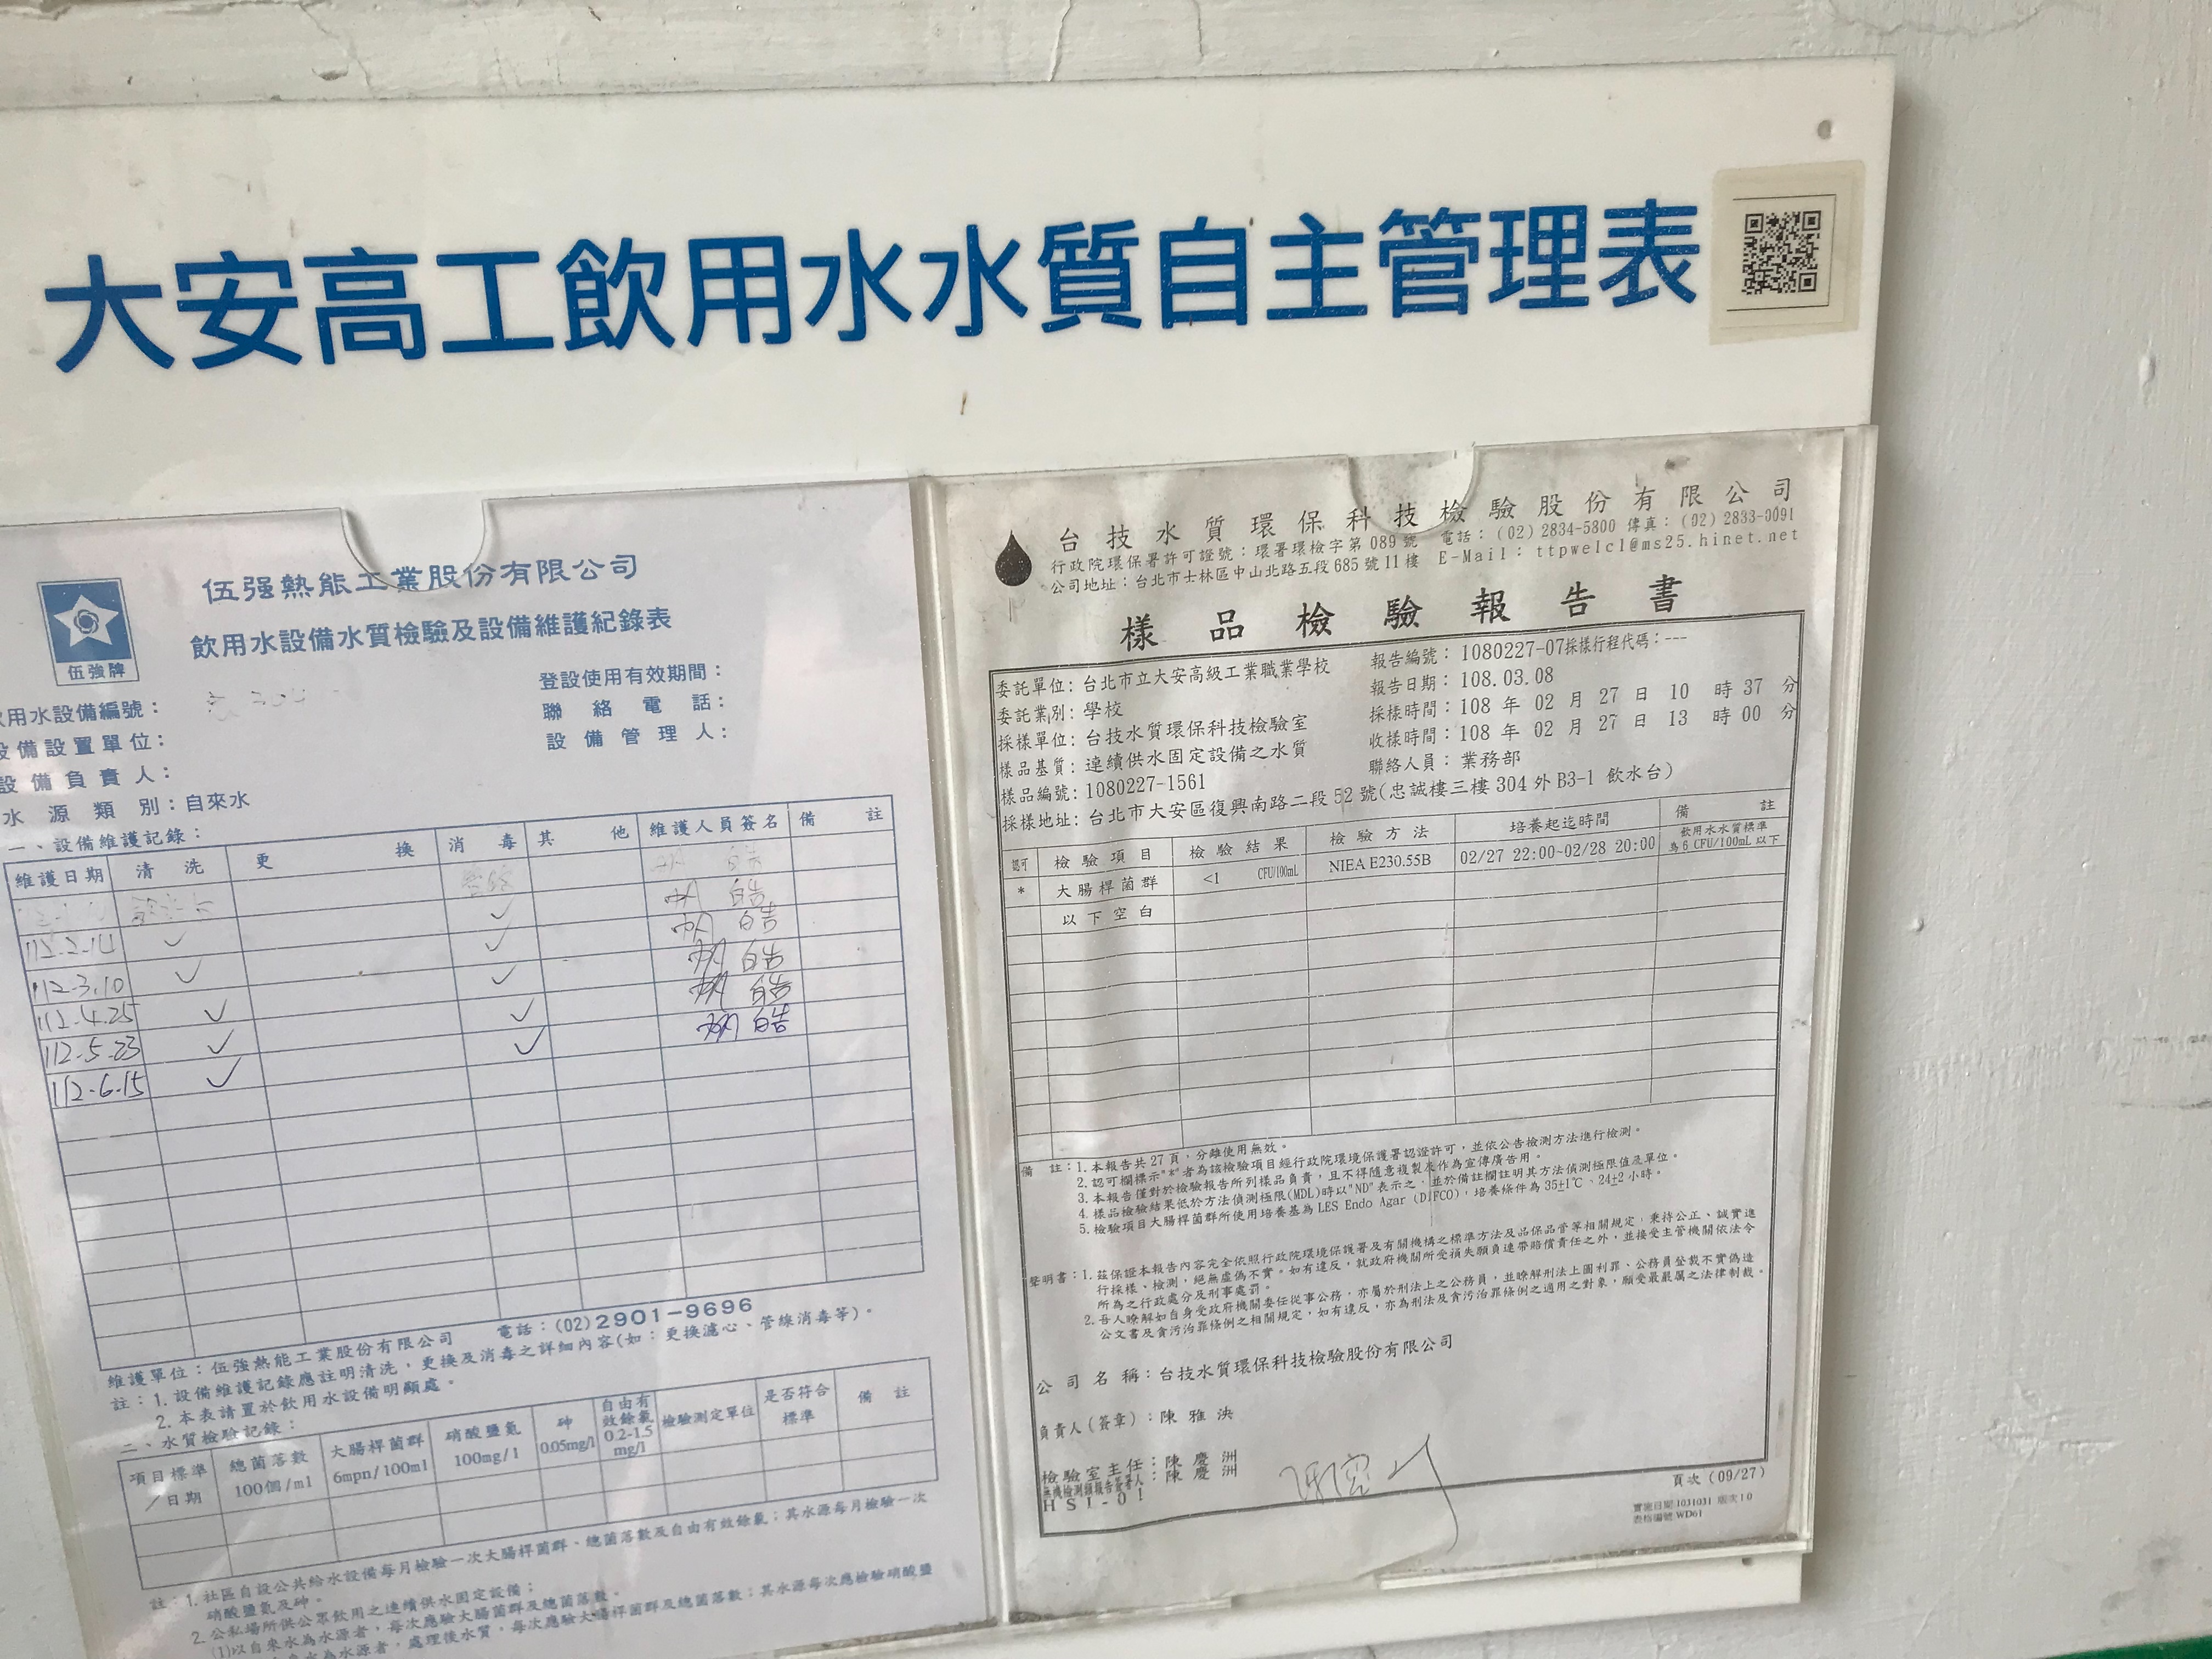 大安高工飲用水水質自主管理表
伍强熱能工業股份有限公司
飲用水設備水質檢驗及設備維護紀錄表
伍強牌
飲用水設備編號：
登設使用有效期間：
設備設置單位：
聯絡電話：
設備負責人：
設備管理人：
水源類別：自來水
一、設備維護記錄：
維護日期 清洗 更換 消毒 其他 維護人員簽名 備註
112.2.14 ✓ ✓
112.3.10 ✓ ✓
112.4.25 ✓ ✓
112.5.23 ✓ ✓
112.6.15 ✓ ✓
維護單位：伍強熱能工業股份有限公司 電話：(02)2901-9696
註：1. 設備維護記錄應註明清洗，更換及消毒之詳細內容(如：更換濾心、管線消毒等)。
2. 本表請置於飲用水設備明顯處。
二、水質檢驗記錄：
項目標準／日期 總菌落數 100個/ml 大腸桿菌群 6mpn/100ml 硝酸鹽氮 100mg/l 砷 0.05mg/l 自由有效餘氯 0.2-1.5 mg/l 檢驗測定單位 是否符合標準 備註
註：1. 社區自設公共給水設備每月檢驗一次大腸桿菌群、總菌落數及自由有效餘氯；其水源每月檢驗一次
硝酸鹽氮及砷。
2. 公私場所供公眾飲用之連續供水固定設備：
(1)以自來水為水源者，每次應驗大腸菌群及總菌落數。
水為水源者，處理後水質，每次應驗大腸桿菌群及總菌落數；其水源每次應檢驗硝酸鹽
台技水質環保科技檢驗股份有限公司
行政院環保署許可證號：環署環檢字第 089 號 電話：(02) 2834-5800 傳真：(02) 2833-0091
公司地址：台北市士林區中山北路五段 685 號 11 樓 E-Mail：ttpwelcl@ms25.hinet.net
樣品檢驗報告書
委託單位：台北市立大安高級工業職業學校 報告編號：1080227-07採樣行程代碼：---
委託業別：學校 報告日期：108.03.08
採樣單位：台技水質環保科技檢驗室 採樣時間：108 年 02 月 27 日 10 時 37 分
樣品基質：連續供水固定設備之水質 收樣時間：108 年 02 月 27 日 13 時 00 分
樣品編號：1080227-1561 聯絡人員：業務部
採樣地址：台北市大安區復興南路二段 52 號(忠誠樓三樓 304 外 B3-1 飲水台)
認可 檢驗項目 檢驗結果 檢驗方法 培養起迄時間 備註
* 大腸桿菌群 <1 CFU/100mL NIEA E230.55B 02/27 22:00~02/28 20:00 飲用水水質標準為 6 CFU/100mL 以下
以下空白
備註：1. 本報告共 27 頁，分離使用無效。
2. 認可欄標示"*"者為該檢驗項目經行政院環境保護署認證許可，並依公告檢測方法進行檢測。
3. 本報告僅對於檢驗報告所列樣品負責，且不得隨意複製或作為宣傳廣告用。
4. 樣品檢驗結果低於方法偵測極限(MDL)時以"ND"表示之，並於備註欄註明其方法偵測極限值及單位。
5. 檢驗項目大腸桿菌群所使用培養基為 LES Endo Agar (DIFCO)，培養條件為 35±1℃、24±2 小時。
聲明書：1. 茲保證本報告內容完全依照行政院環境保護署及有關機構之標準方法及品保品管等相關規定，秉持公正、誠實進
行採樣、檢測，絕無虛偽不實。如有違反，就政府機關所受損失願負連帶賠償責任之外，並接受主管機關依法令
所為之行政處分及刑事處罰。
2. 吾人瞭解如自身受政府機關委任從事公務，亦屬於刑法上之公務員，並瞭解刑法上圖利罪、公務員登載不實偽造
公文書及貪污治罪條例之相關規定，如有違反，亦為刑法及貪污治罪條例之適用之對象，願受最嚴厲之法律制裁。
公司名稱：台技水質環保科技檢驗股份有限公司
負責人(簽章)：陳雅泱
檢驗室主任：陳慶洲
無機檢測類報告簽署人：陳慶洲
HSI-01
頁次 (09/27)
實施日期 1031031 版次 1.0
表格編號 WD61